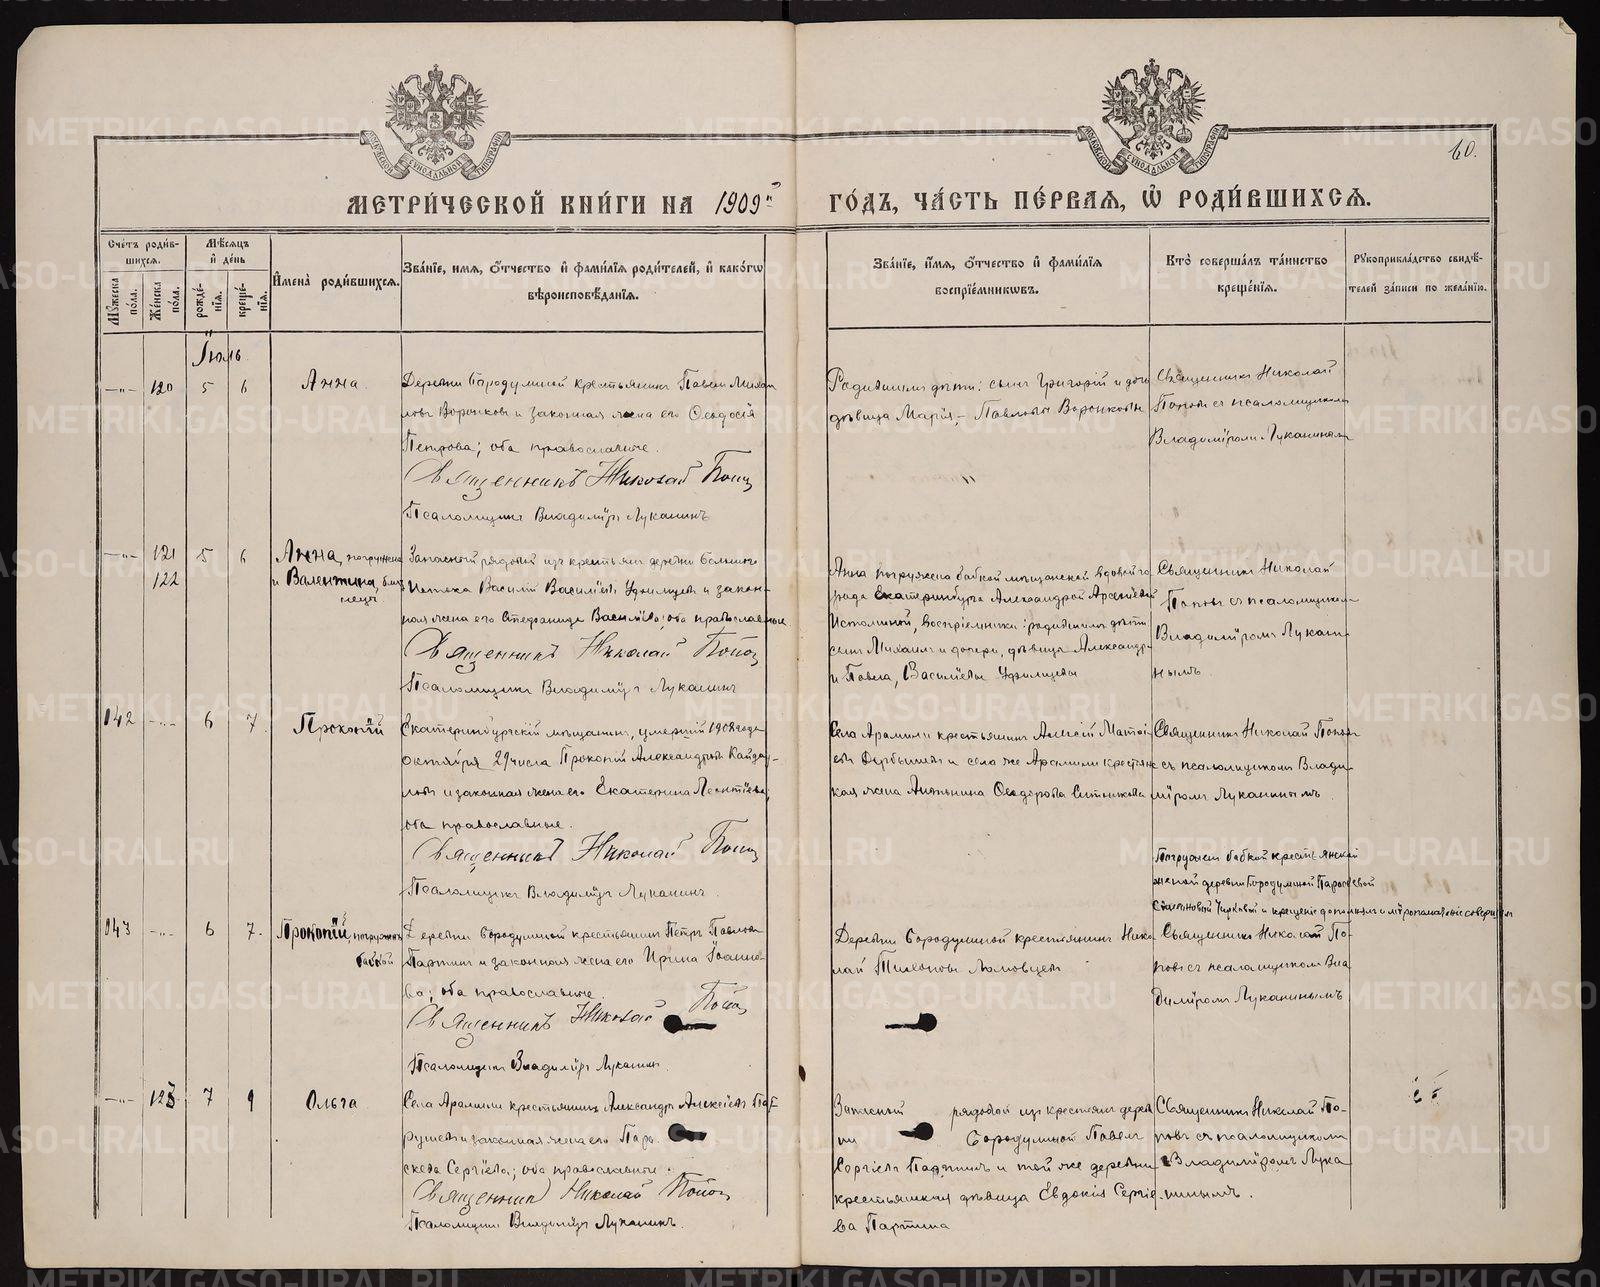 МЕТРИ́ЧЕСКОЙ КНИ́ГИ НА 1909й ГО́ДЪ, ЧА́СТЬ ПЕ́РВАЯ, Ѡ҆ РОДИ́ВШИХСЯ.
60.
Сче́тъ роди́в-
шихся.
Мѣ́сяцъ
и҆ де́нь
Мꙋ́жеска
по́ла.
Же́нска
по́ла.
рожде́-
нїя.
креще́-
нїя.
И҆мена̀ роди́вшихся.
Зва́нїе, имя, ѻ҆́тчество и҆ фами́лїя роди́телей, и҆ како́гѡ
вѣроисповѣ́данїя.
Зва́нїе, и҆́мя, ѻ҆́тчество и҆ фами́лїя
воспрїе́мникѡвъ.
Кто̀ соверша́лъ та́инство
креще́нїя.
Рꙋкоприкла́дство свидѣ́-
телей за́писи по жела́нїю.
Іюль
—"— 120 5 6 Анна
Деревни Бородулиной крестьянинъ Павелъ Михаи
ловъ Воронковъ и законная жена его Ѳеодосія
Петрова; оба православные.
Священникъ Николай Поповъ
Псаломщикъ Владиміръ Луканинъ
Родившихъ дѣти: сынъ Григорій и дочь
дѣвица Марія, Павловы Воронковы
Священникъ Николай
Поповъ съ псаломщикомъ
Владиміромъ Луканинымъ
—"— 121 5 6 Анна, погружена
122 и Валентина, близ
нецы
Запасный рядовой изъ крестьянъ деревни
Истока Василій Васильевъ Удилцевъ и закон-
ная жена его Стефанида Васильева; оба православные
Священникъ Николай Поповъ
Псаломщикъ Владиміръ Луканинъ
Анна погружена бабкой мѣщанской вдовой го
рода Екатеринбурга Александрой Арсеніевой
Истоминой, воспріемники: родившихъ дѣти
сынъ Михаилъ и дочери, дѣвицы Александра
и Павла, Васильевы Удилцевы
Священникъ Николай
Поповъ съ псаломщикомъ
Владиміромъ Лукани-
нымъ
142 —"— 6 7 Прокопій
Екатеринбургскій мѣщанинъ, умершій 1908 года
октября 29 числа Прокопій Александровъ Кайда-
ловъ и законная жена его Екатерина Леонтіева;
оба православные.
Священникъ Николай Поповъ
Псаломщикъ Владиміръ Луканинъ.
Села Арамили крестьянинъ Алексій Матѳі-
евъ Дербышевъ и села же Арамили крестьянс
кая жена Антонина Ѳеодорова Ситникова
Священникъ Николай Поповъ
съ псаломщикомъ Влади-
міромъ Луканинымъ
143 —"— 6 7 Прокопій, погруженъ
бабкой
Деревни Бородулиной крестьянинъ Петръ Павловъ
Партинъ и законная жена его Ирина Іоанно-
ва; оба православные.
Священникъ Николай Поповъ
Псаломщикъ Владиміръ Луканинъ.
Деревни Бородулиной крестьянинъ Нико
лай Тихоновъ Ломовцевъ
Погруженъ бабкой крестьянской
женкой деревни Бородулиной Параскевой
Чирковой и крещеніе дополнилъ и мѵропомазаніе совершилъ
Священникъ Николай По-
повъ съ псаломщикомъ Вла
диміромъ Луканинымъ
—"— 123 7 9 Ольга
Села Арамили крестьянинъ Александръ Алексіевъ Па
рушевъ и законная жена его Пара
скева Сергіева; оба православные.
Священникъ Николай Поповъ
Псаломщикъ Владиміръ Луканинъ.
Запасный рядовой изъ крестьянъ дерев
ни Бородулиной Павелъ
Сергіевъ Партинъ и той же деревни
крестьянская дѣвица Евдокія Сергіе-
ва Партина
Священникъ Николай По-
повъ съ псаломщикомъ
Владиміромъ Лука
нинымъ.
METRIKI.GASO-URAL.RU